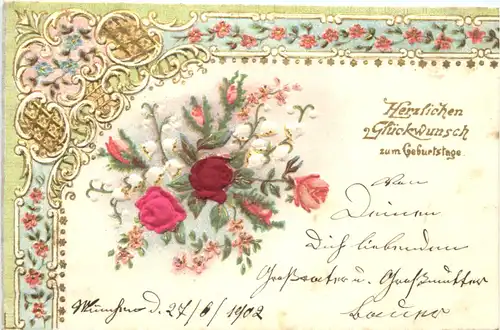 Herzlichen
Glückwunsch
zum Geburtstage.
von
Deinen
Dich liebenden
Großvater u. Großmutter
Bauer
München d. 27/6/1902